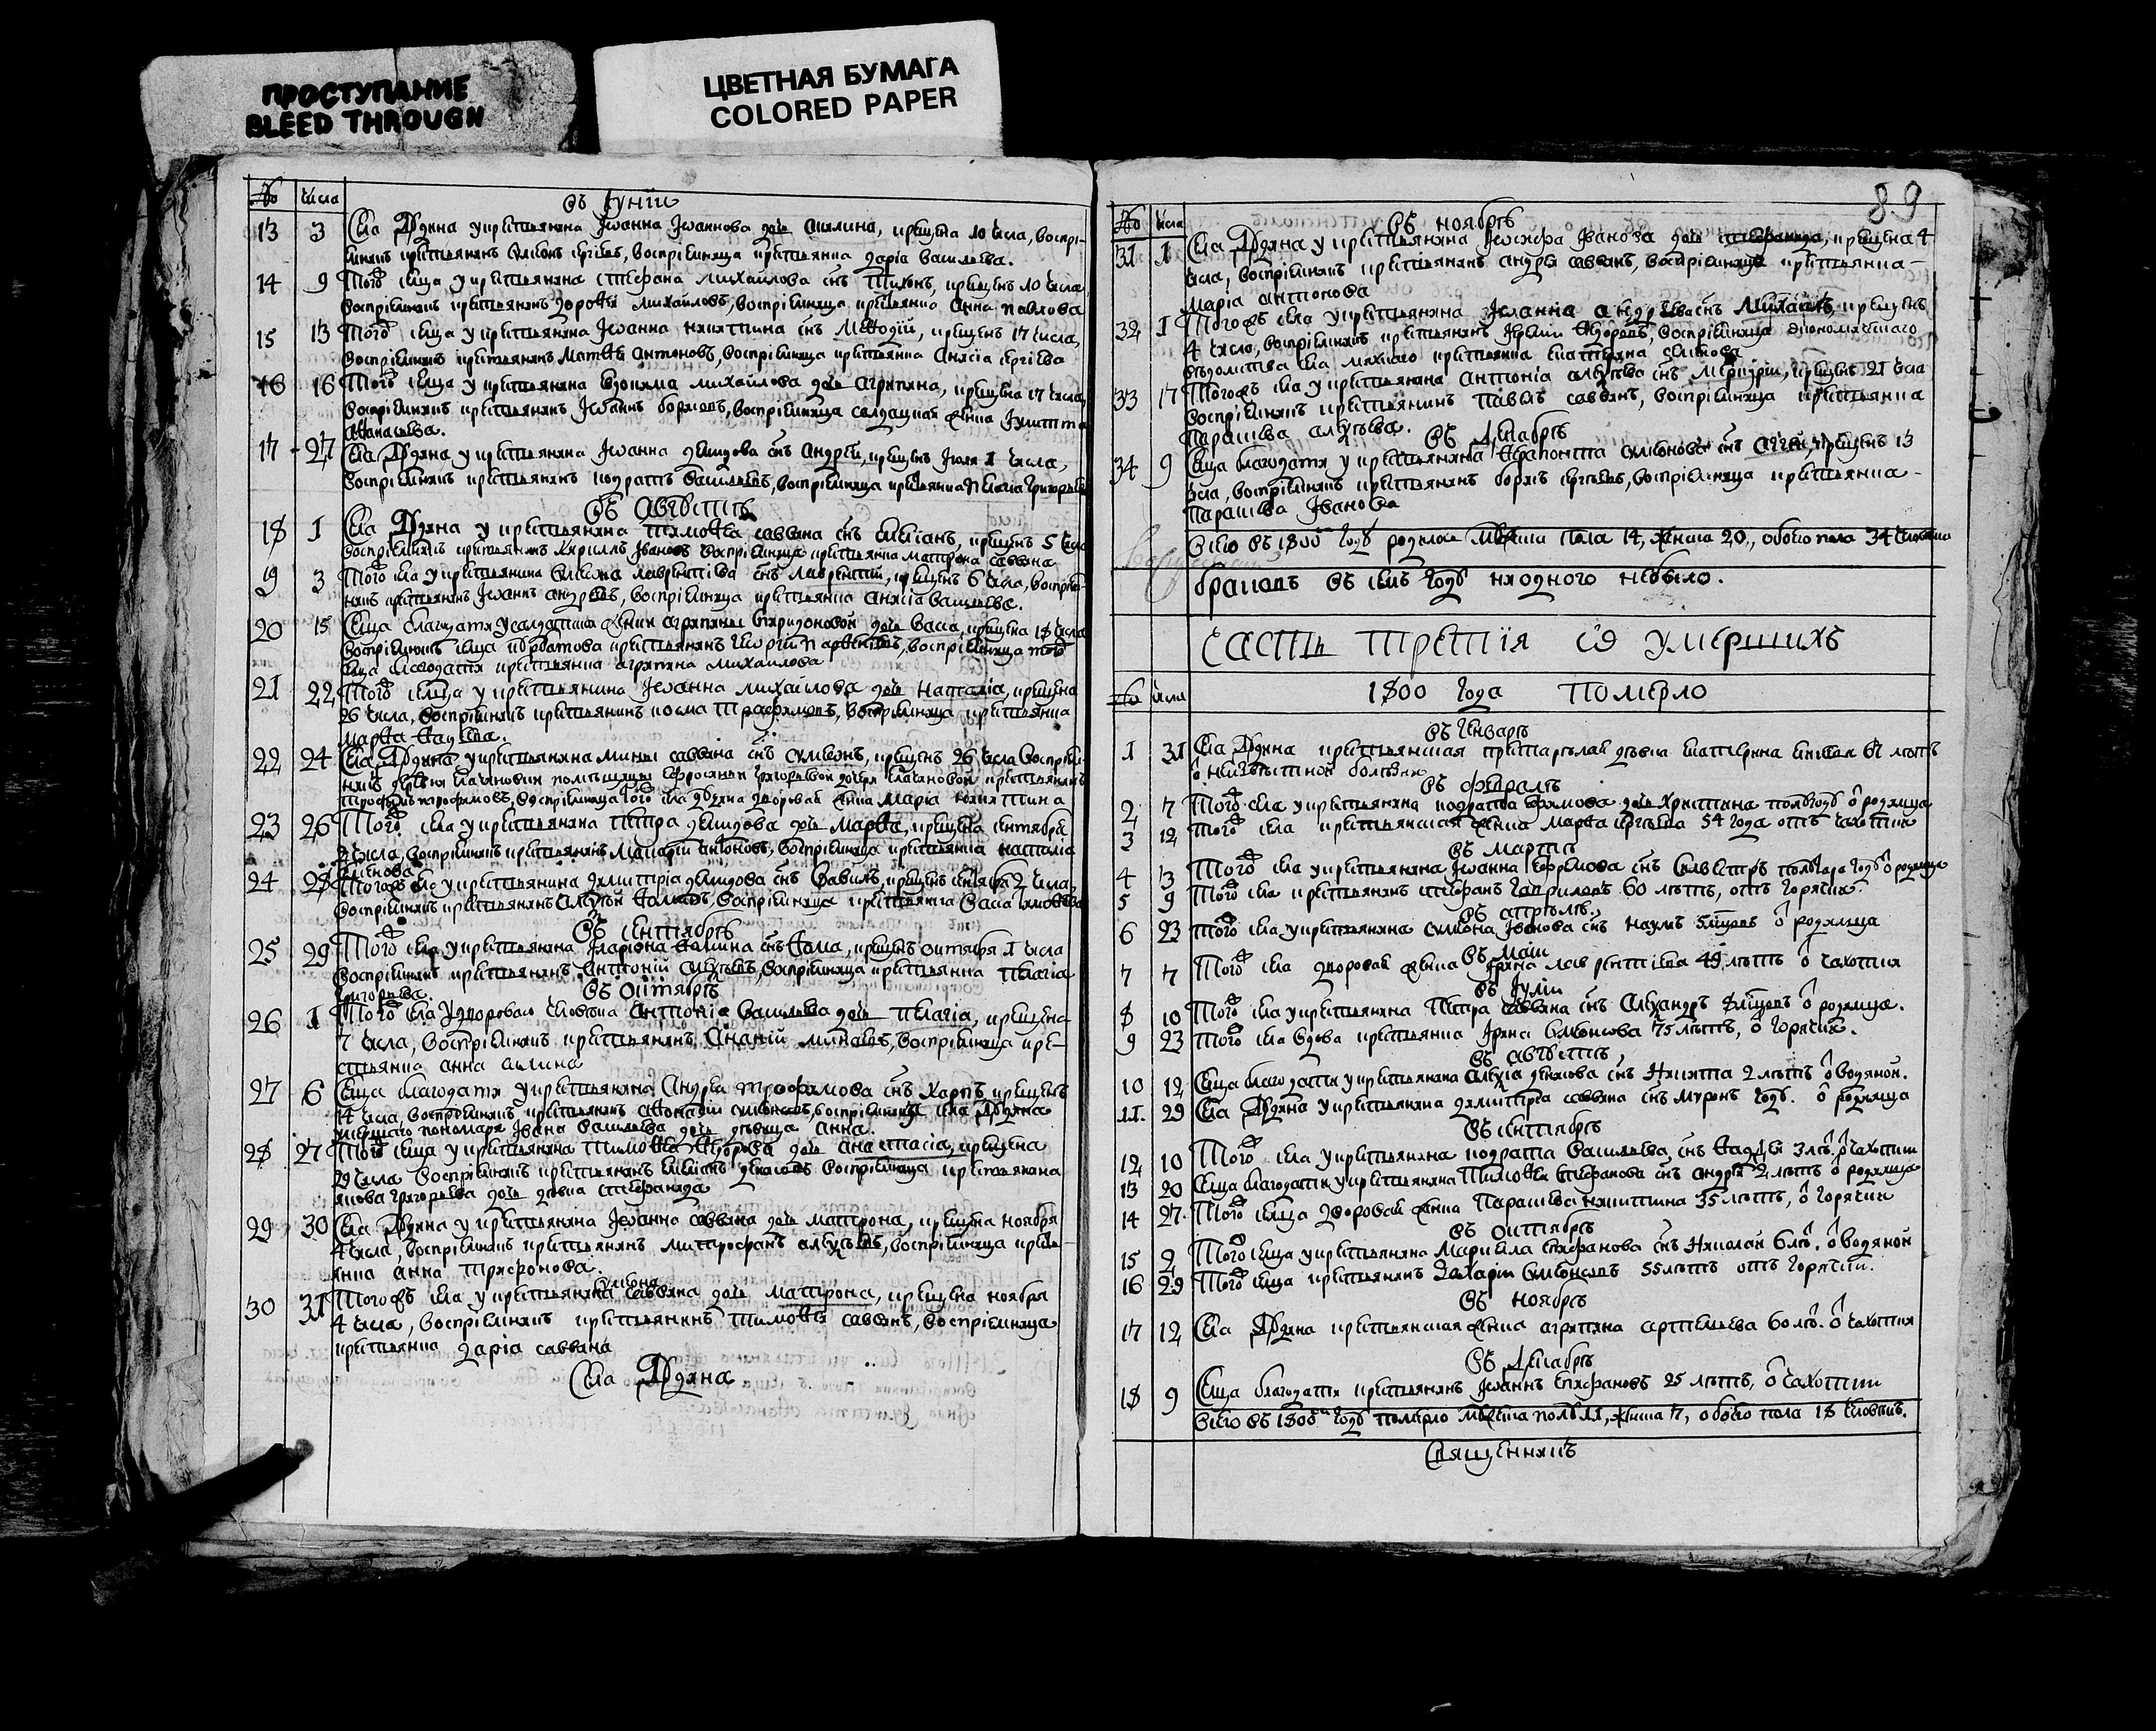 ПРОСТУПАНИЕ
BLEED THROUGH
ЦВЕТНАЯ БУМАГА
COLORED PAPER
№ числа въ Іуніи
13 3 Села Ардяна у крестьянина Іѡанна Іѡаннова дочь Акилина, крещена 10 числа, воспрі-
емникъ крестьянинъ Симеонъ воспріемница крестьянка Даріа Васильева.
14 9 Того сельца у крестьянина Стефана Михайлова снъ Тихонъ, крещенъ 10 числа
воспріемникъ крестьянинъ Михайловъ, воспріемница крестьянка Анна Павлова
15 13 Того сельца у крестьянина Іѡанна Никитина снъ Меѳодій, крещенъ 17 числа,
воспріемникъ крестьянинъ Матвей Антоновъ, воспріемница крестьянка
16 16 Того сельца у крестьянина Михайлова дочь Агрипина, крещена 17 числа,
воспріемникъ крестьянинъ Іѡаннъ воспріемница салдацкая жена
Аѳанасьева.
17 27 Села Ардяна у крестьянина Іѡанна Демидова снъ Андрей, крещенъ Іюля 1 числа,
воспріемникъ крестьянинъ Кодратъ Васильевъ, воспріемница крестьянка Пелагіа Григорьева
въ Августѣ
18 1 Села Ардяна у крестьянина Тимоѳеа Саввина снъ крещенъ 5 числа
воспріемникъ крестьянинъ Кириллъ Івановъ воспріемница крестьянка Матрона Саввина
19 3 Того села у крестьянина Симеона Лаврентіева снъ Лаврентій, крещенъ 6 числа, воспріем-
никъ крестьянинъ Іѡаннъ Андреевъ, воспріемница крестьянка
20 15 Сельца Благодати у салдатской жены Агрипины Спиридоновой дочь Васса, крещена 18 числа
воспріемникъ сельца крестьянинъ Георгій Парѳентьевъ, воспріемница того
сельца Благодати крестьянка Агрипина Михайлова
21 22 Того сельца у крестьянина Іѡанна Михайлова дочь Наталіа, крещена
26 числа, воспріемникъ крестьянинъ Косма Трофимовъ, воспріемница крестьянка
Марѳа
22 24 Села Ардяна у крестьянина Мины Саввина снъ Симеонъ, крещенъ 26 числа воспріем-
никъ деревни помещицы крестьянинъ
воспріемница того села Ардяна дворовая жена Маріа Никитина
23 26 Того села у крестьянина Петра Демидова дочь Марѳа, крещена Сентября
2 числа, воспріемникъ крестьянинъ Макарій Антоновъ, воспріемница крестьянка Наталіа
24 28 Тогожъ села у крестьянина Димитріа Демидова снъ Вавилъ, крещенъ Сентября 2 числа,
воспріемникъ крестьянинъ Алексѣй воспріемница крестьянка Васса
въ Сентябрѣ
25 29 Того села у крестьянина Иларіона Ѳомина снъ Ѳома, крещенъ Октября 1 числа
воспріемникъ крестьянинъ Антоній Алексеевъ, воспріемница крестьянка Пелагіа
Григорьева.
въ Октябрѣ
26 1 Того села у дворового человѣка Антоніа Васильева дочь Пелагіа, крещена
7 числа, воспріемникъ крестьянинъ Ананій воспріемница кре-
стьянка Анна
27 6 Сельца Благодати у крестьянина Андреа Трофимова снъ Карпъ крещенъ
14 числа, воспріемникъ крестьянинъ воспріемница села Ардяна
умершаго пономаря Івана Васильева дочь девица Анна.
28 27 Того сельца у крестьянина Тимоѳеа Ѳедорова дочь Анастасіа, крещена
29 числа воспріемникъ крестьянинъ воспріемница крестьянина
Якова Григорьева дочь девка Стефанида
29 30 Села Ардяна у крестьянина Іѡанна Саввина дочь Матрона, крещена Ноября
4 числа, воспріемникъ крестьянинъ Митрофанъ Алексѣевъ, воспріемница кресть-
янка Анна Трифонова.
30 31 Тогожъ села у крестьянина Симеона Саввина дочь Матрона, крещена Ноября
4 числа, воспріемникъ крестьянинъ Тимоѳей Саввинъ, воспріемница
крестьянка Даріа Саввина
Села Ардяна
89
№ числа въ Ноябрѣ
31 1 Села Ардяна у крестьянина Іѡсифа Іванова дочь Стефанида, крещена 4
числа, воспріемникъ крестьянинъ Андрей Саввинъ, воспріемница крестьянка
Маріа Антонова
32 1 Тогожъ села у крестьянина Іѡанна Андреева снъ Михаилъ, крещенъ
4 число, воспріемникъ крестьянинъ Ѳедоровъ, воспріемница экономическаго
ведомства села крестьянка
33 17 Тогожъ села у крестьянина Антоніа Алексѣева снъ Меркурій, крещенъ 21 числа
воспріемникъ крестьянинъ Павелъ Саввинъ, воспріемница крестьянка
Параскева Алексѣева.
въ Декабрѣ
34 9 Сельца Благодати у крестьянина Ѳерапонта Симеонова снъ крещенъ 13
числа, воспріемникъ крестьянинъ Борисъ воспріемница крестьянка
Параскева Іванова
Всего въ 1800 годѣ родилось мужеска пола 14, женска 20, обоего пола 34 человека
браковъ въ семъ годѣ ни одного небыло.
Часть третія ѡ умершихъ
№ числа 1800 года померло
въ Генварѣ
1 31 Села Ардяна крестьянская престарелая девка Екатерина 67 лѣтъ
ѿ неизвестной болезни
въ Февралѣ
2 7 Того села у крестьянина Кодрата Ефимова дочь Христина ѿ родимца
3 12 Того села крестьянская жена Марѳа 54 года отъ чахотки
въ Мартѣ
4 3 Того села у крестьянина Іѡанна Ефремова снъ Селивестръ ѿ родимца
5 9 Того села крестьянинъ Стефанъ Гавриловъ 60 лѣтъ, отъ горячки.
въ Апрѣлѣ.
6 23 Того села у крестьянина Симеона Іванова снъ Наумъ 5 мцовъ ѿ родимца
въ Маіи
7 7 Того села дворовая жена Ірина Лаврентіева 49 лѣтъ ѿ чахотки
въ Іулии
8 10 Того села у крестьянина Петра Саввина снъ Александръ 8 мцовъ ѿ родимца.
9 23 Того села вдова крестьянка Ірина Симеонова 75 лѣтъ, ѿ горячки.
въ Августѣ
10 12 Сельца Благодати у крестьянина Алексіа снъ Никита 2 лѣтъ ѿ водяной.
11. 29 Села Ардяна у крестьянина Димитріа Саввина снъ Миронъ годъ. ѿ родимца
въ Сентябрѣ
12 10 Того села у крестьянина Кодрата Васильева, снъ Ѳаддей 3 лѣ. ѿ чахотки
13 20 Сельца Благодати у крестьянина Тимоѳеа Стефанова снъ Андрей 2 лѣтъ ѿ родимца
14 27 Того сельца дворовая жена Параскева Никитина 35 лѣтъ, ѿ горячки
въ Октябрѣ
15 2 Того сельца у крестьянина Епифанова снъ Николай 6 лѣ. ѿ водяной
16 29 Того сельца крестьянинъ Захарій Симеоновъ 55 лѣтъ отъ горячки.
въ Ноябрѣ
17 12 Села Ардяна крестьянская жена Агрипина 60 лѣ. ѿ чахотки
въ Декабрѣ
18 9 Сельца Благодати крестьянинъ Іѡаннъ Епифановъ 25 лѣтъ, ѿ чахотки
Всего въ 1800 годѣ померло мужеска полѣ 11, женска 7, обоего пола 18 человекъ.
Священникъ